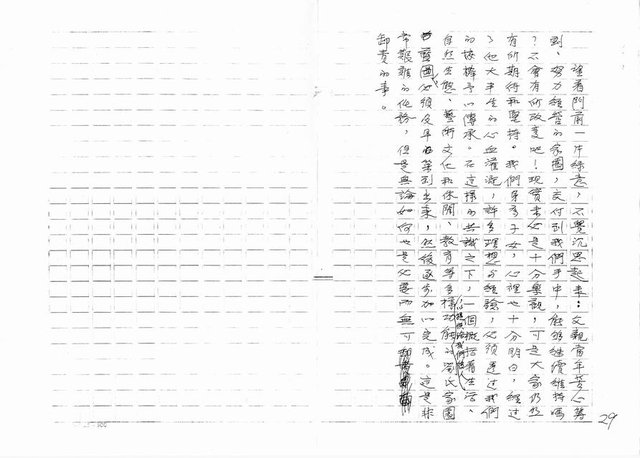 望着門前一片綠意，不覺沉思起來：父親當年苦心籌
劃、努力經營的家園，交付到我們手中，能夠繼續維持嗎
？不會有所改變吧！現實來也是十分樂觀，可是大家仍然
有所期待和堅持。我們身為子女，心裡也十分明白，經過
了他大半生的心血灌溉，許多理想與經驗，必須透過我們
的接棒予以傳承。在這樣的共識之下，一個概括着生活、
自然生態、藝術文化和休閒、教育等多樣功能的 氏家園
必須及早 策劃出來，然後逐步加以完成。這是非
常艱難的任務，但是無論如何也是父 而無可
卸責的事。
29